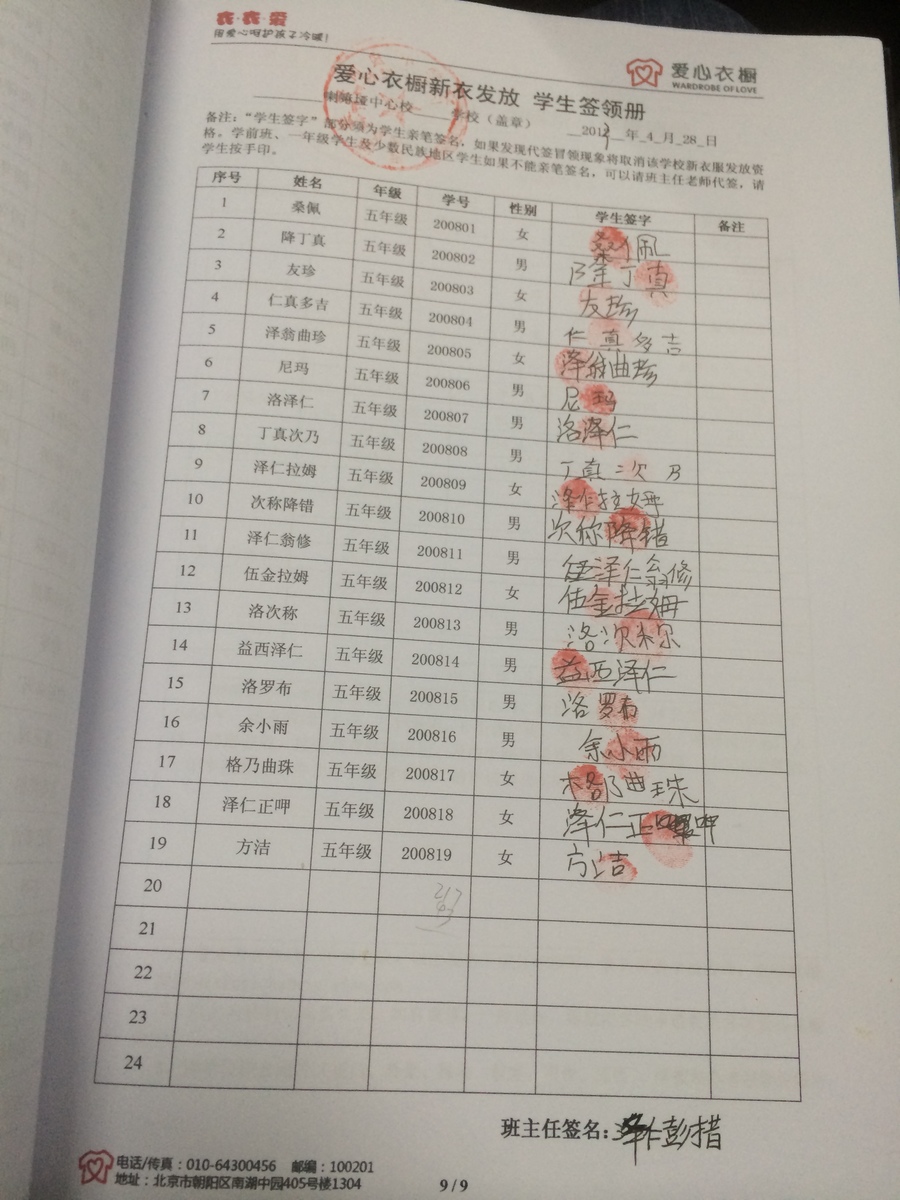 衣·衣·爱
用爱心呵护孩子冷暖!
爱心衣橱
WARDROBE OF LOVE
爱心衣橱新衣发放 学生签领册
中心校 学校（盖章） 201 年_4_月_28_日
备注：“学生签字”部分须为学生亲笔签名，如果发现代签冒领现象将取消该学校新衣服发放资
格。学前班、一年级学生及少数民族地区学生如果不能亲笔签名，可以请班主任老师代签，请
学生按手印。
序号 姓名 年级 学号 性别 学生签字 备注
1 桑佩 五年级 200801 女 桑佩
2 降丁真 五年级 200802 男 降丁真
3 友珍 五年级 200803 女 友珍
4 仁真多吉 五年级 200804 男 仁真多吉
5 泽翁曲珍 五年级 200805 女 泽翁曲珍
6 尼玛 五年级 200806 男 尼玛
7 洛泽仁 五年级 200807 男 洛泽仁
8 丁真次乃 五年级 200808 男 丁真次乃
9 泽仁拉姆 五年级 200809 女 泽仁拉姆
10 次称降错 五年级 200810 男 次称降错
11 泽仁翁修 五年级 200811 男 泽仁翁修
12 伍金拉姆 五年级 200812 女 伍金拉姆
13 洛次称 五年级 200813 男 洛次
14 益西泽仁 五年级 200814 男 益西泽仁
15 洛罗布 五年级 200815 男 洛罗布
16 余小雨 五年级 200816 男 余小雨
17 格乃曲珠 五年级 200817 女 格乃曲珠
18 泽仁正呷 五年级 200818 女 泽仁正呷
19 方洁 五年级 200819 女 方洁
20
21
22
23
24
班主任签名：泽仁彭措
电话/传真：010-64300456 邮编：100201
地址：北京市朝阳区南湖中园405号楼1304
9 / 9